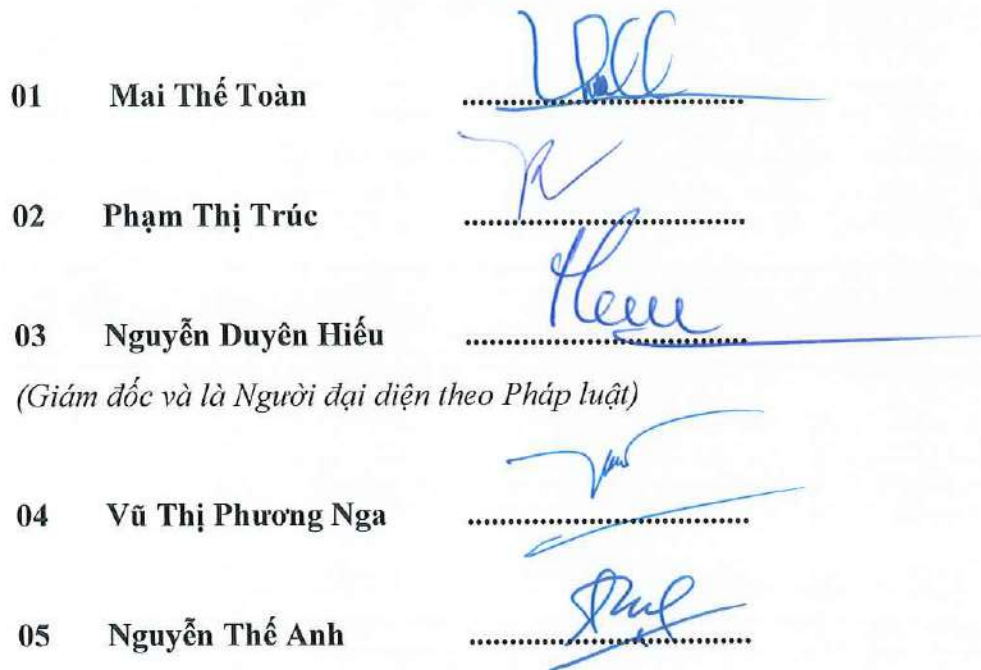 01 Mai Thế Toàn ................
02 Phạm Thị Trúc ................
03 Nguyễn Duyên Hiếu ................
(Giám đốc và là Người đại diện theo Pháp luật)
04 Vũ Thị Phương Nga ................
05 Nguyễn Thế Anh ................